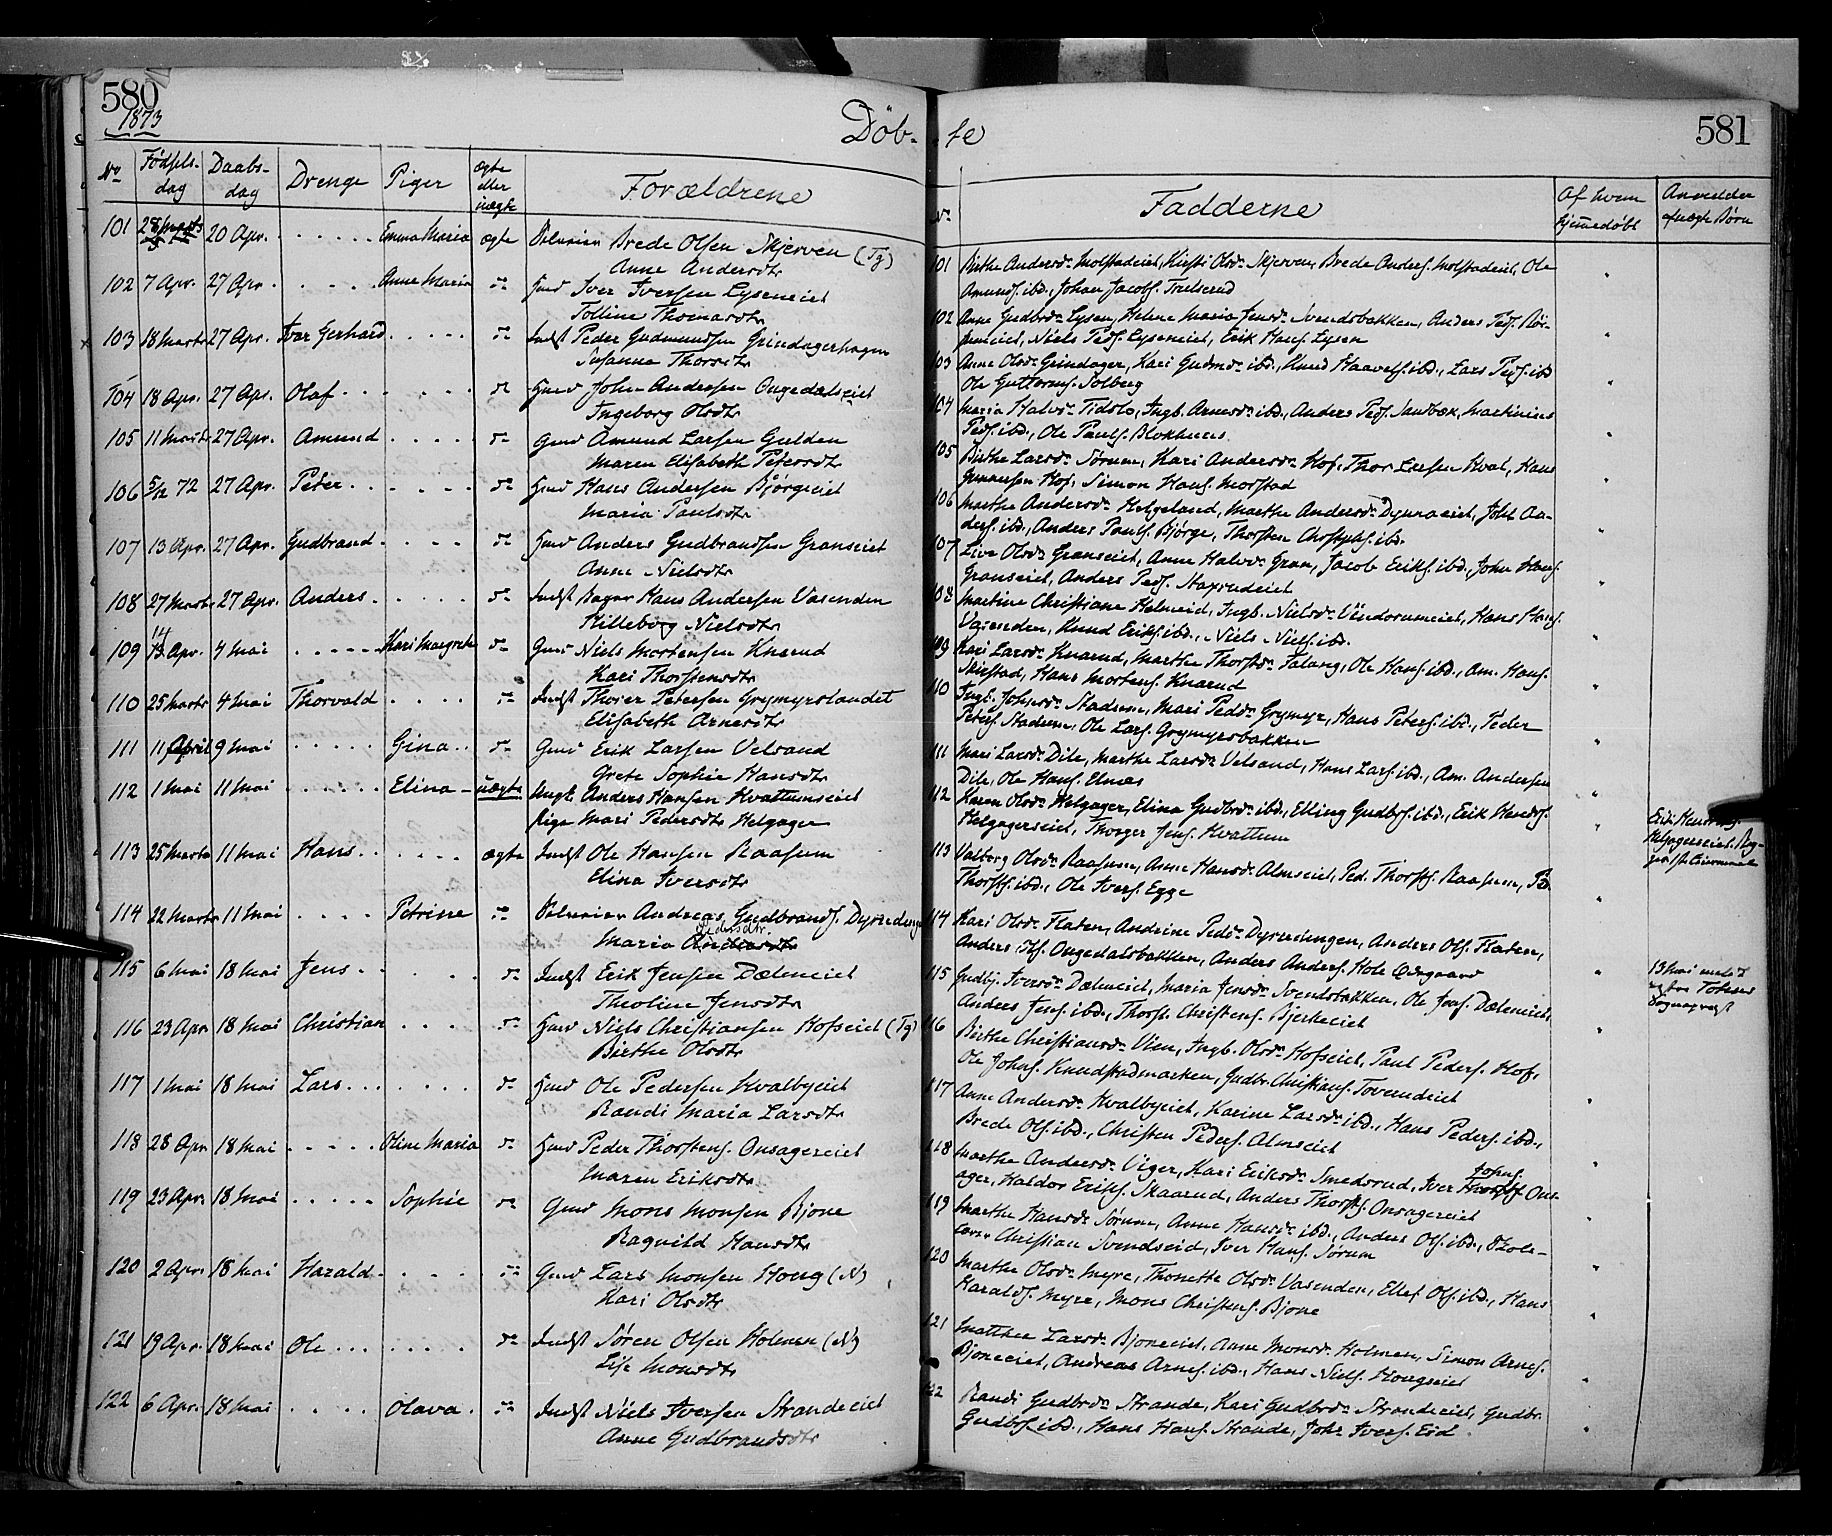 580
1873
Døb-
No
Fødsels-dag
Daabs-dag
Drenge
Piger
ægte eller uægte
Forældrene
101 20 Apr. Emma Maria ægte Brede Olsen Skjerven (Tg)
Anne Andersdtr
102 7 Apr. 27 Apr. Anne Maria do Husmd Iver Iversen Lyseneiet
Tolline Thomasdtr
103 18 Marts 27 Apr. Ivar Gerhard do Indst Peder Gudmundsen Grindagerhagen
Susanne Thorsdtr
104 18 Apr. 27 Apr. Olaf do Husmd Johan Andersen Ougedalseiet
Ingeborg Olsdtr
105 11 Marts 27 Apr. Amund do Gmd Amund Larsen Gulden
Maren Elisabeth Petersdtr
106 5/12 72 27 Apr. Peter do Husmd Hans Andersen Bjørgeiet
Maria Paulsdtr
107 13 Apr. 27 Apr. Gudbrand do Husmd Anders Gudbrandsen Granseiet
Anne Nielsdtr
108 27 Marts 27 Apr. Anders do Indst Bager Hans Andersen Vasenden
Killeborg Nielsdtr
109 14 Apr. 4 Mai Kari Margrete do Gmd Niels Mortensen Knarud
Kari Thorstensdtr
110 25 Marts 4 Mai Thorvald do Indst Thorer Petersen Grymyrslandet
Elisabeth Arnesdtr
111 11 April 9 Mai Gina do Gmd Erik Larsen Velsand
Grete Sophie Hansdtr
112 1 Mai 11 Mai Elina uægte Ungk. Anders Hansen Kvattumseiet
Pige Mari Pedersdtr Helgager
113 25 Marts 11 Mai Hans ægte Indst Ole Hansen Raasum
Elina Iversdtr
114 22 Marts 11 Mai Petrine do Andreas Gudbrands.
Pedersdtr.
Maria Andersdtr
115 6 Mai 18 Mai Jens do Indst Erik Jensen Dæleneiet
Theoline Jensdtr
116 23 Apr 18 Mai Christian do Husmd Niels Christiansen Hofseiet (Tg)
Birthe Olsdtr
117 1 Mai 18 Mai Lars do Husmd Ole Pedersen Kvalbyeiet
Randi Maria Larsdtr
118 28 Apr 18 Mai Oline Maria do Husmd Peder Thorstens. Onsagereiet
Maren Eriksdtr
119 23 Apr. 18 Mai Sophie do Gmd Mons Monsen Bjone
Ragnild Hansdtr
120 2 Apr. 18 Mai Harald do Gmd Lars Monsen Houg (N)
Kari Olsdtr
121 19 Apr. 18 Mai Ole do Indst Søren Olsen Holmen (N)
Lise Monsdtr
122 6 Apr. 18 Mai Olava do Indst Niels Iversen Strandeeiet
Anne Gudbrandsdtr
581
te
No
Fadderne
Af hvem hjemmedøbt
Anmelder af uægte Børn
101 Birthe Andersdr Molstadeiet, Kirsti Olsdr Skjerven, Brede Anders. Molstadeiet, Ole
Amunds. ibd., Johan Jacobs. Trulserud
102 Anne Gudbrdr Lysen, Helene Maria Jensdr Svendsbakken, Anders Peds.
Niels Peds. Lyseneiet, Erik Hans. Lysen
103 Anne Olsdr Grindager, Kari Gudmdr ibd., Knud Haavels. ibd., Lars Peds. ibd
Ole Guttorms. Solberg
104 Maria Halvdr Fidslo, Ingb. Arnesdr ibd., Anders Peds. Sandbæk, Martinius
Peds. ibd., Ole Pauls. Blokhuus
105 Birthe Larsdr Sørum, Kari Andersdr Hof, Thor Larsen Hval, Hans
Gunnersen Hof, Simon Hans. Morstad
106 Marthe Andersdr Helgeland, Marthe Andersdr Dynnaeiet, Joh. An-
ders. ibd., Anders Pauls. Bjørge, Thorsten ibd.
107 Live Olsdr Granseiet, Anne Halvdr Gran, Jacob Eriks. ibd., John Hans.
Granseiet, Anders Peds.
108 Martine Christiane Helmeid, Ingb. Nielsdr Hans Hans.
Vasenden, Knud Eriks. ibd., Niels Niels. ibd.
109 Kari Larsdr Knarud, Marthe Thorstdr Falang, Ole Hans. ibd., Am. Hans.
Skiristad, Hans Mortens. Knarud
110 Ingb. Johnsdr Staderne, Mari Pedsdr Grymyr, Hans Peters. ibd., Peder
Peters. Staderne, Ole Lars. Grymyrsbakken
111 Mari Larsdr Dile, Marthe Larsdr Velsand, Hans Lars. ibd., Am. Andersen
Dile, Ole Hans. Elnæs
112 Karen Olsdr Helgager, Elina Gudbrdr ibd., Elling Gudbrs. ibd., Erik
Helgagerseiet, Thorger Jens. Kvattum
Erik
Helgagerseiet
113 Valborg Olsdr Raasum, Anne Hansdr Almseiet, Ped. Thorsts. Raasum,
Thorsts. ibd., Ole Ivers. Egge
114 Kari Olsdr Flaten, Andrine Peddr Anders Ols. Flaten,
Anders Ols. Ougedalsbakken, Anders Anders. Hole
115 Gudbj. Iversdr Dæleneiet, Maria Jensdr Svendsbakken, Ole Jens. Dæleneiet,
Anders Jens. ibd., Thorst. Christens. Bjerkeeiet
13 Mai
116 Birthe Christiansdr Vien, Ingb. Olsdr Hofseiet, Paul Peders. Hof,
Ole Johns. Knudstadmarken, Gudbr. Christians. Toverudeiet
117 Anne Andersdr Kvalbyeiet, Karine Larsdr ibd., Hans Peders. ibd.,
Brede Ols. ibd., Christen Peders. Almseiet
118 Marthe Andersdr Viger, Kari Eriksdr Smedsrud, Iver Johns. Ons-
ager, Haldor Eriks. Skaarud, Anders Thorsts. Onsagereiet
119 Marthe Hansdr Sørum, Anne Hansdr ibd., Anders Ols. ibd., Skole-
lærer Christian Svendseid, Iver Hans. Sørum
120 Marthe Olsdr Myre, Thonette Olsdr Vasenden, Ellef Ols. ibd., Hans
Haralds. Myre, Mons Christens. Bjone
121 Matthea Larsdr Bjoneeiet, Anne Monsdr Holmen, Simon Arnes.
Bjoneeiet, Andreas Arnes. ibd., Hans Niels. Hougseiet
122 Randi Gudbrdr Strande, Kari Gudbrdr Strandeeiet, Gudbr.
Gudbrs. ibd., Hans Hans. Strande, Joh. Ivers. Eid